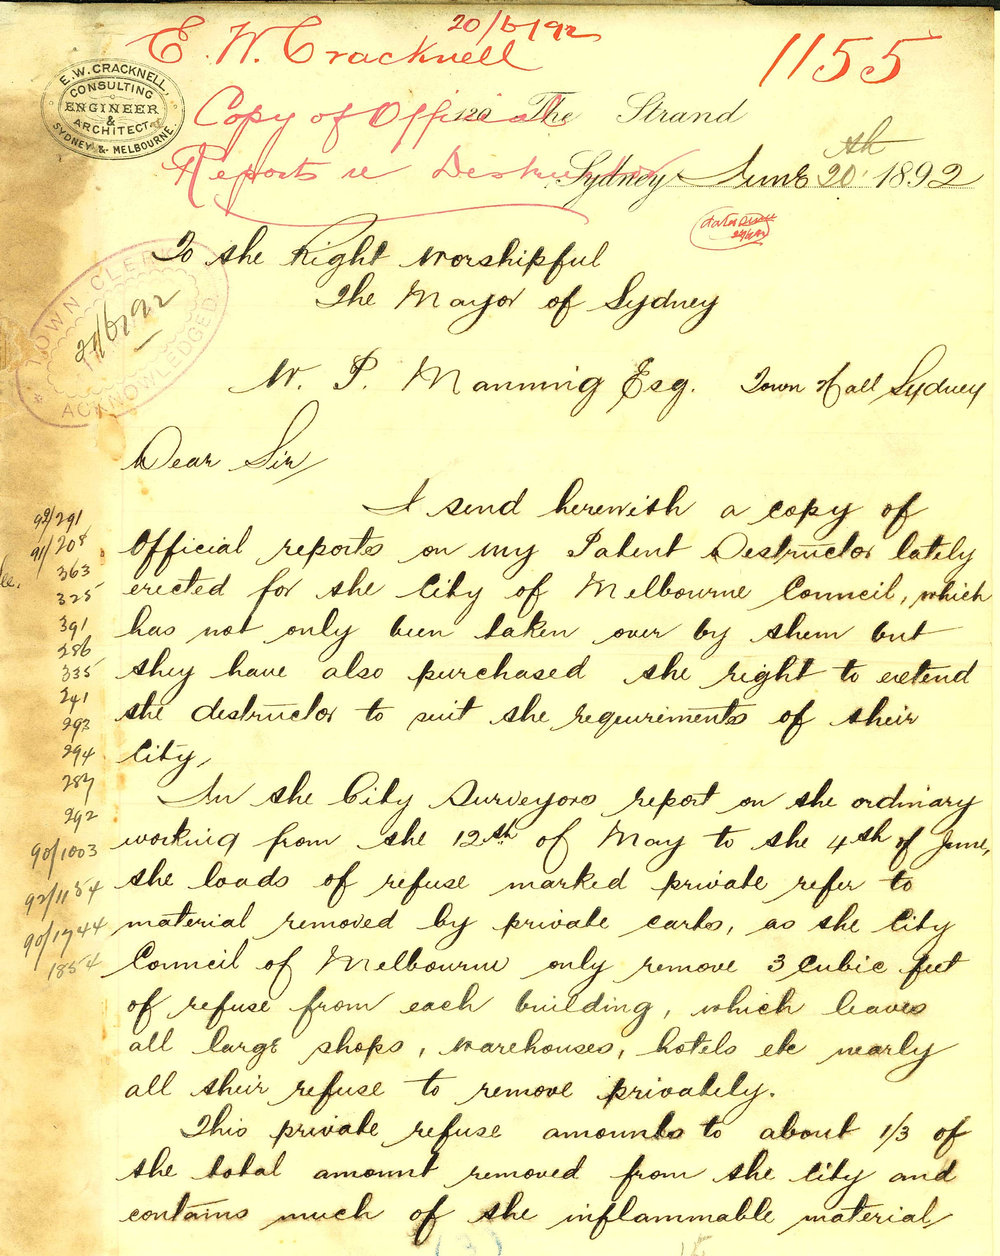 20/6/92
E. W. Cracknell
1155
E. W. CRACKNELL,
CONSULTING
ENGINEER
&
ARCHITECT
SYDNEY & MELBOURNE.
Copy of Official
Reports re Destructor
120 The Strand
Sydney June 20th 1892
To the Right Worshipful
The Mayor of Sydney
TOWN CLERK
21/6/92
ACKNOWLEDGED
W. P. Manning Esq. Town Hall Sydney
Dear Sir,
I send herewith a copy of
Official reports on my Patent Destructor lately
erected for the City of Melbourne Council, which
has not only been taken over by them but
they have also purchased the right to extend
the destructor to suit the requirements of their
City,
In the City Surveyors report on the ordinary
working from the 12th of May to the 4th of June,
the loads of refuse marked private refer to
material removed by private carts, as the City
Council of Melbourne only remove 3 Cubic feet
of refuse from each building, which leaves
all large shops, warehouses, hotels etc nearly
all their refuse to remove privately.
This private refuse amounts to about 1/3 of
the total amount removed from the City and
contains much of the inflammable material
92/291
91/208
363
325
391
286
335
241
293
294
287
292
90/1003
92/1154
90/1744
1854